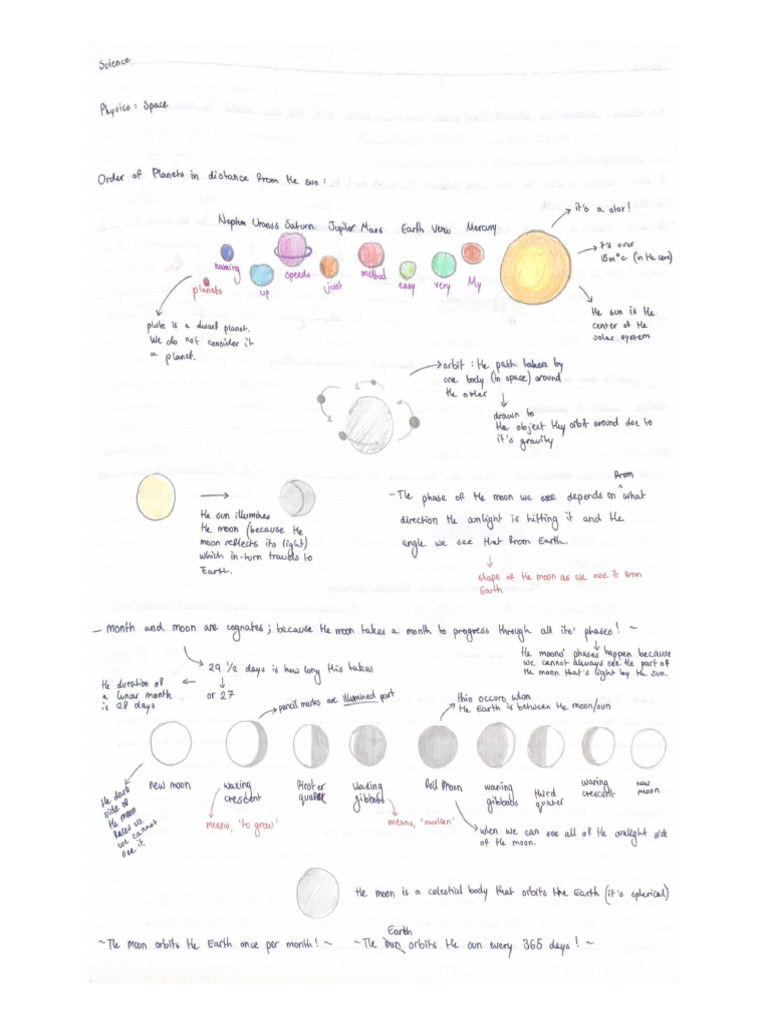 Science
Physics: Space
Order of Planets in distance from the sun:
it's a star!
Neptune Uranus Saturn Jupiter Mars Earth Venus Mercury
it's over
15m°c (in the core)
naming
up
speeds
just
method
easy
very
My
planets
the sun is the
center of the
solar system
pluto is a dwarf planet.
We do not consider it
a planet.
orbit: the path taken by
one body (in space) around
the other
drawn to
the object they orbit around due to
it's gravity
the sun illumines
the moon (because the
moon reflects its light)
which in-turn travels to
Earth.
from
- The phase of the moon we see depends on what
direction the sunlight is hitting it and the
angle we see that from Earth.
shape of the moon as we see it from
Earth
- month and moon are cognates; because the moon takes a month to progress through all its' phases! ~
the moons' phases happen because
we cannot always see the part of
the moon that's light by the sun.
29 1/2 days is how long this takes
or 27
the duration of
a lunar month
is 28 days
pencil marks are illumined part
this occurs when
the Earth is between the moon/sun
new moon
waxing
crescent
first
quarter
waxing
gibbous
full moon
waning
gibbous
third
quarter
waning
crescent
new
moon
the dark
side of
the moon
faces us
we cannot
see it
means, 'to grow'
means, 'swollen'
when we can see all of the sunlight side
of the moon.
the moon is a celestial body that orbits the Earth (it's spherical)
~ The Moon orbits the Earth once per month! ~
Earth
~ The sun orbits the sun every 365 days! ~